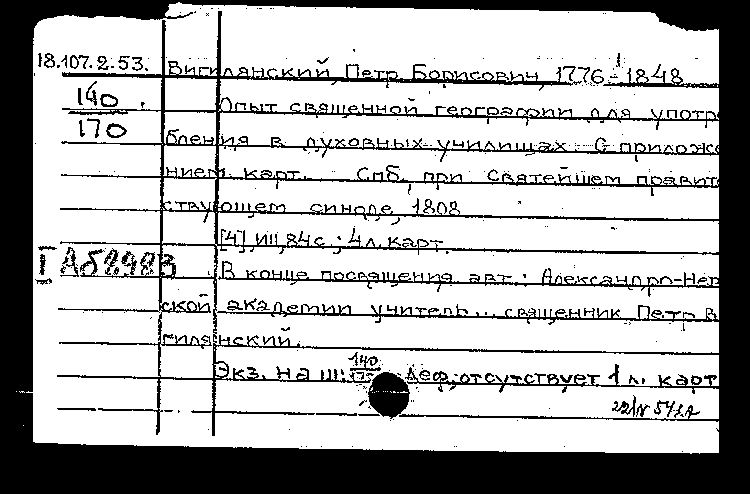 18.107.2.53. Вигилянский, Петр Борисович, 1776-1848
140
170
Опыт священной географии для употре
бления в духовных училищах. С приложе
нием карт. Спб, при Святейшем правите
ствующем синоде, 1808
[4], III, 84 с.; 4 л. карт.
I Аб2983
В конце посвящения авт.: Александро-Нев
ской академии учитель... священник Петр В
гилянский.
Экз. на Ш: 140
Деф.; отсутствует 1 л. карт